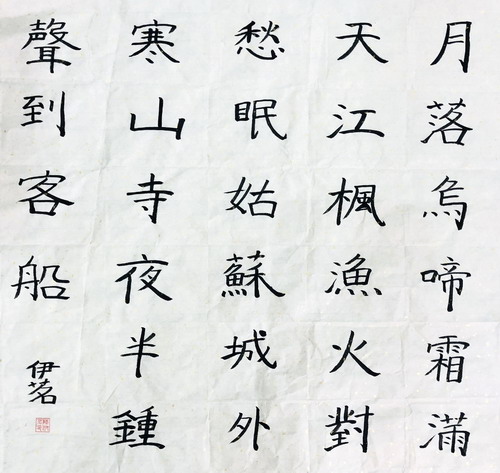 月落烏啼霜滿
天江楓漁火對
愁眠姑蘇城外
寒山寺夜半鍾
聲到客船
伊茗